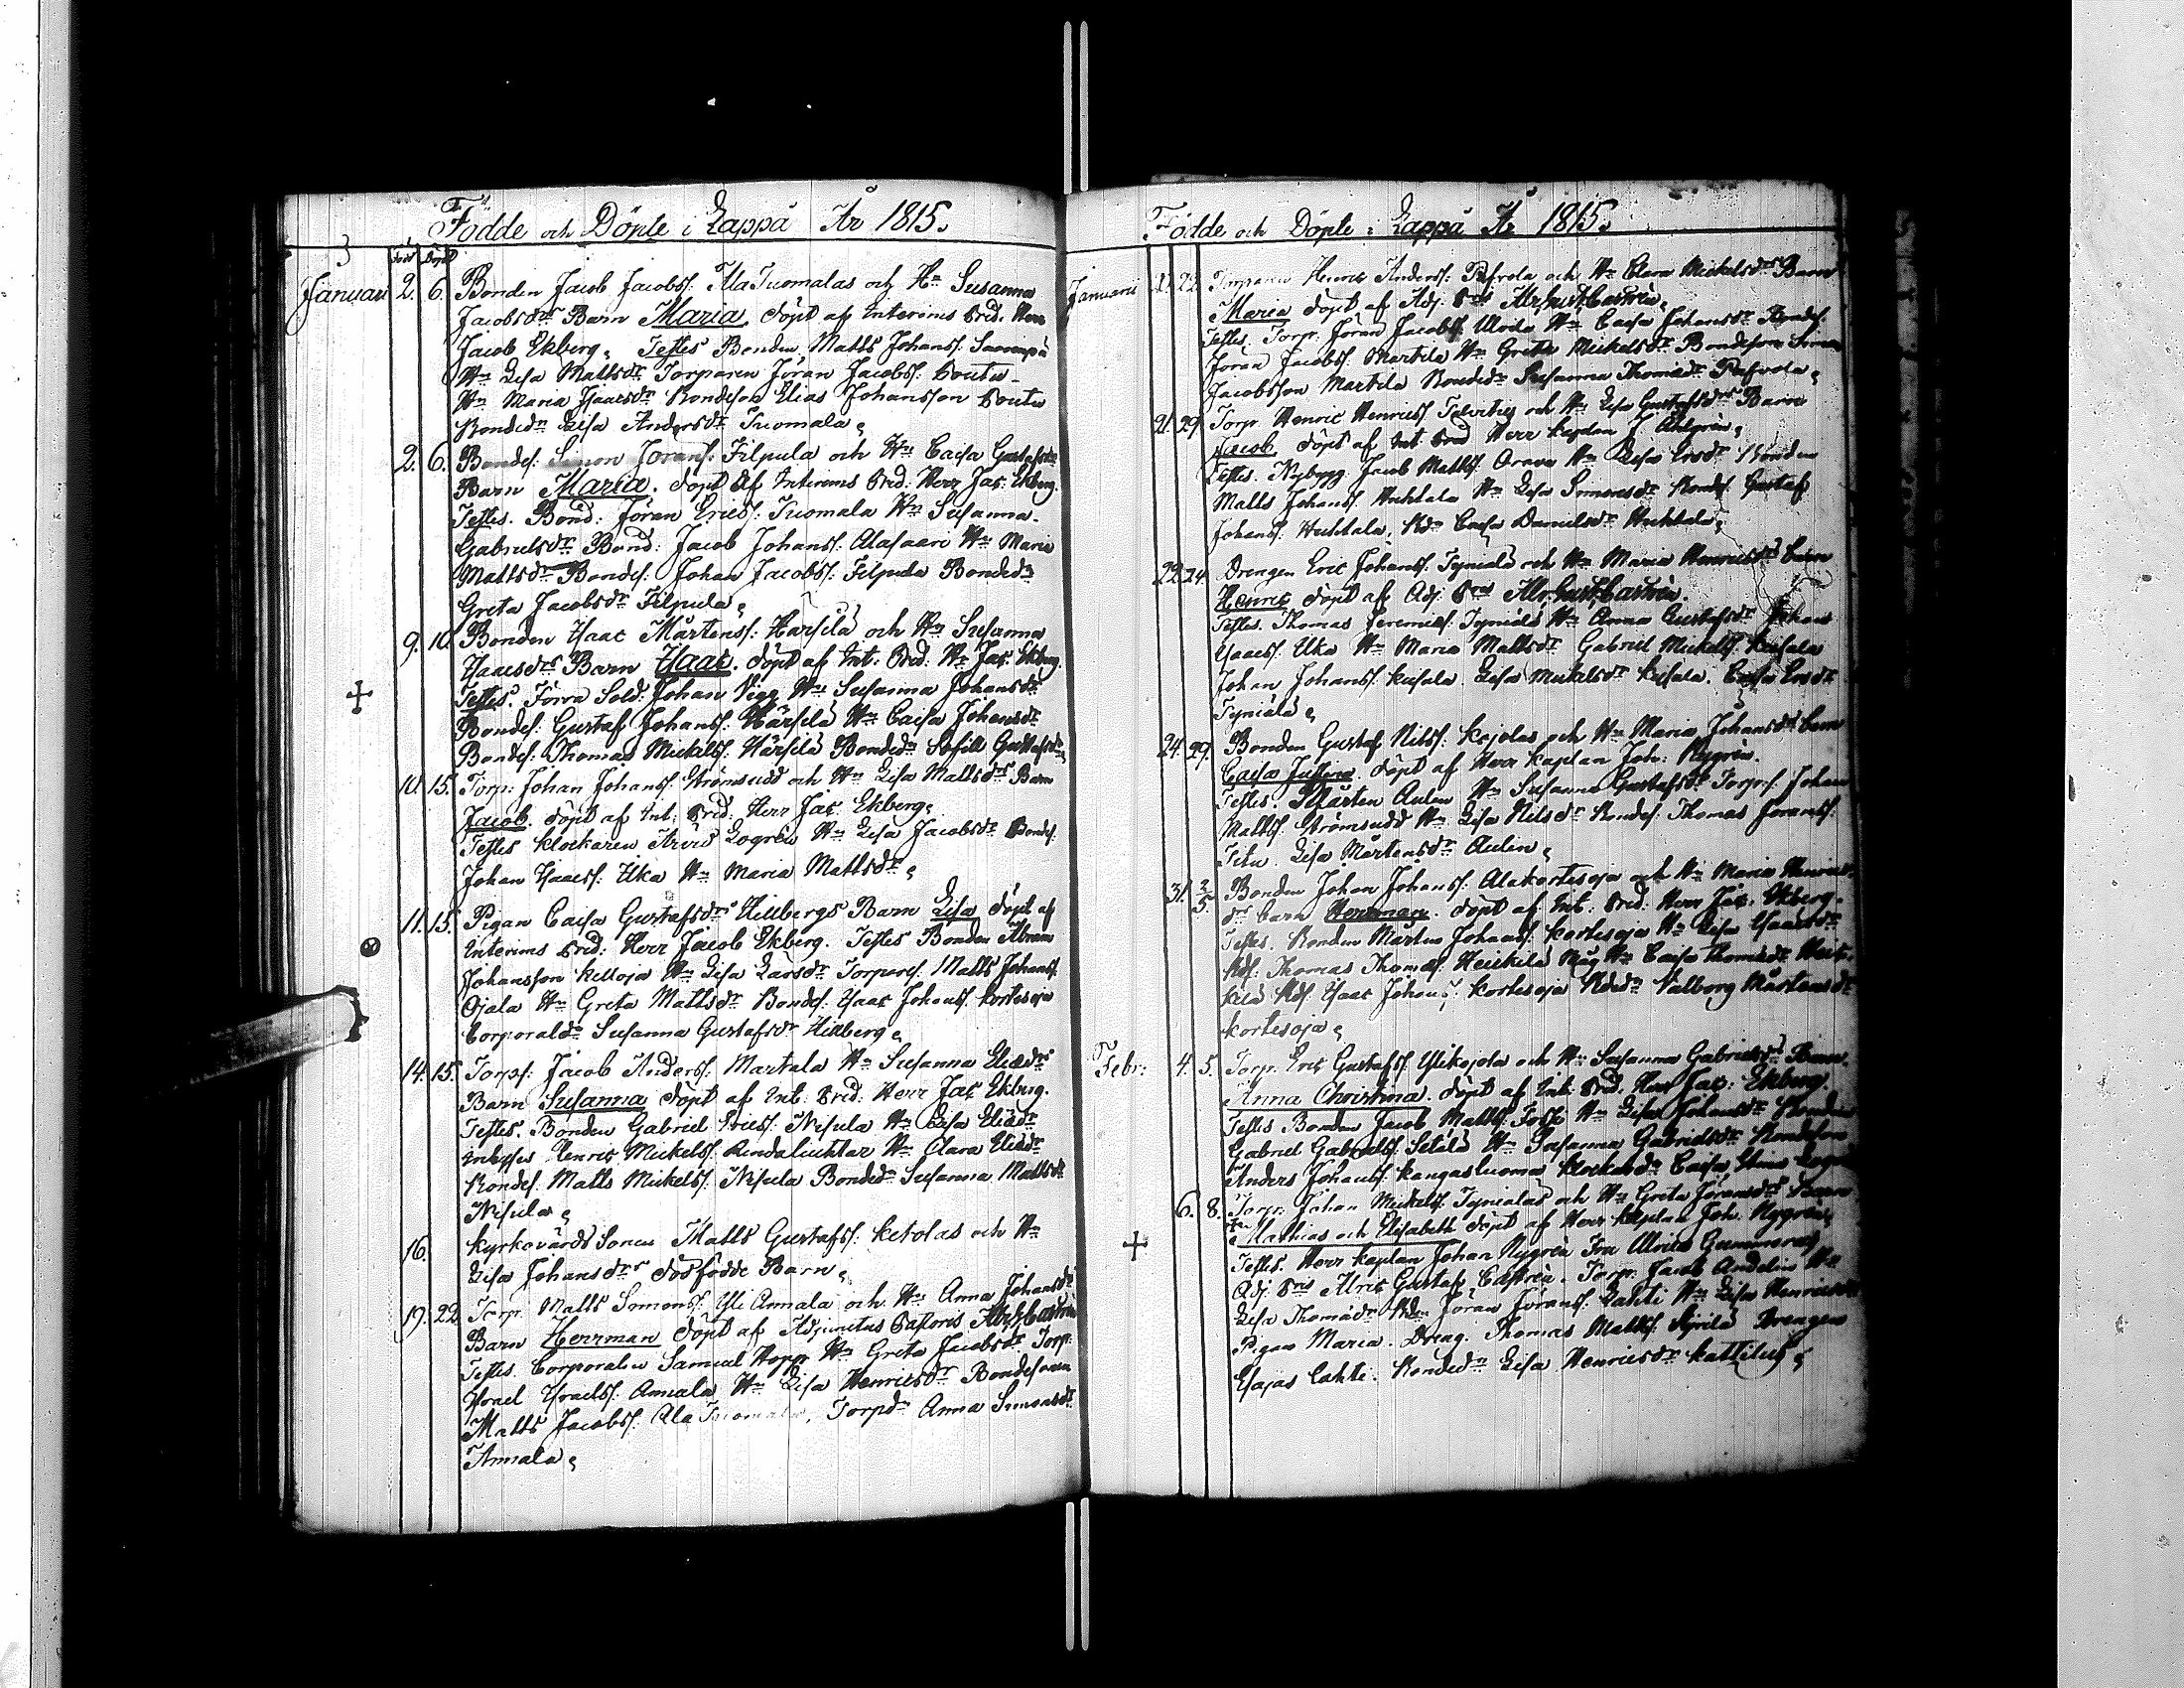 Födde och Döpte i Lappå År 1815.
Född Döpt
Januari 2. 6. Bonden Jacob Jacobss: Ala Tuomalas och Hu Susanna
Jacobsdrs Barn Maria, döpt af Interims Pred. Herr
Jacob Ekberg. Testes Bonden Matts Johanss:
Hu Lisa Mattsdr Torparen Jöran Jacobss: Coutu
Hu Maria Isacsdr Bondeson Elias Johansson Coutu
Bondedr Lisa Andersdr Tuomala
2. 6. Bondes: Simon Jöranss: Filpula och Hu Caisa Gustafsdrs
Barn Maria. döpt af Interims Pred: Herr Jac: Ekberg.
Testes. Bond: Jöran Ericss: Tuomala Hu Susanna
Gabrielsdr Bond: Jacob Johanss: Alasaari Hu Maria
Mattsdr Bondes: Johan Jacobss: Filpula Bondedr
Greta Jacobsdr Filpula
9. 10. Bonden Isaac Mårtenss: Harsilä och Hu Susanna
Isacsdrs Barn Isaac. döpt af Int: Pred: Hr Jac: Ekberg.
Testes. Förra Sold: Johan Vigg Hu Susanna Johansdr
Bondes: Gustaf Johanss: Härsilä Hu Caisa Johansdr
Bondes: Thomas Mickelss: Härsilä Bondedr Gustafsdr
10. 15. Torp: Johan Johanss: Strömsudd och Hu Lisa Mattsdrs Barn
Jacob. döpt af Int: Pred: Herr Jac: Ekberg.
Testes Klockaren Arvid Logrén Hu Lisa Jacobsdr Bondes:
Johan Isacss: Uka Hu Maria Mattsdr
11. 15. Pigan Caisa Gustafsdrs Hillbergs Barn Lisa döpt af
Interims Pred: Herr Jacob Ekberg. Testes Bonden Abram
Johansson Kelloja Hu Lisa Larsdr Torpares: Matts Johanss:
Ojala Hu Greta Mattsdr Bondes: Isaac Johanss: Kortesoja
Corporaldr Susanna Gustafsdr Hillberg
14. 15. Torps: Jacob Anderss: Martala Hu Susanna Eliædrs
Barn Susanna döpt af Int: Pred: Herr Jac: Ekberg.
Testes. Bonden Gabriel Ericss: Nisula Hu Lisa Eliædr
Inhyses Henric Mickelss: Hu Clara Eliædr
Bondes: Matts Mickelss: Nisula Bondedr Susanna Mattsdr
Nisula
16. Kyrkovärds Sonen Matts Gustafss: Ketolas och Hu
Lisa Johansdrs dödfödde Barn
19. 22. Torp. Matts Simonss: Yli Annala och Hu Anna Johansdrs
Barn Herrman döpt af Adjunctus Pastoris Castrén
Testes Corporalen Samuel Hopp Hu Greta Jacobsdr Torp.
Israel Israelss: Annala Hu Lisa Henricsdr Bondesonen
Matts Jacobss: Ala Tuomala. Torpdr Anna Simonsdr
Annala
Födde och Döpte i Lappå År 1815.
Januarii 21. 22. Torparen Henric Anderss: och Hu Clara Mickelsdrs Barn
Maria döpt af Adj: Castrén.
Testes. Torp: Jöran Jacobss: Hu Caisa Johansdr Bondes:
Jöran Jacobss: Martila Hu Greta Mickelsdr Bondeson
Jacobsson Martila Bondedr Susanna Thomædr
21. 29. Torp. Henric Henricss: och Hu Lisa Gustafsdrs Barn
Jacob, döpt af Herr Kaplan J.
Testes. Nybygg. Jacob Mattss: Orava Hu Lisa Ersdr Bonden
Matts Johanss: Huhtala Hu Lisa Simonsdr Bondes: Gustaf
Johanss: Huhtala. Bdr Caisa Danielsdr Huhtala
22. 24. Drengen Eric Johanss: Tyniälä och Hu Maria Henricsdrs barn
Henric döpt af Adj: Castrén.
Testes. Thomas Jeremiæs: Tyniälä Hu Anna Gustafsdr Johan
Isacss: Uka Hu Maria Mattsdr Gabriel Mickelss: Kusala
Johan Johanss: Kusala. Lisa Mickelsdr Kusala. Caisa Ersdr
Tyniälä
24. 29. Bonden Gustaf Nilss: Kojolas och Hu Maria Johansdrs barn
Caisa Justina. döpt af Herr Kaplan Joh: Nygrén.
Testes. Mårten Aulin Hu Susanna Gustafsdr Torps: Johan
Mattss: Strömsudd Hu Lisa Nilsdr Bondes: Thomas Jöranss:
Lisa Mårtensdr Aulin
31. 2/5. Bonden Johan Johanss: Alakortesoja och Hu Maria Henrics
drs barn Herrman. döpt af Int: Pred: Herr Jac: Ekberg.
Testes. Bonden Mårten Johanss: Kortesoja Hu Lisa Isacsdr
Bds: Thomas Thomæs: Heickilä Måg Hu Caisa Thomædr Heic
kilä Bds: Isaac Johanss: Kortesoja Bdedr Valborg Mårtensdr
Kortesoja
Febr: 4. 5. Torp. Eric Gustafss: Ylikojola och Hu Susanna Gabrielsdrs Barn
Anna Christina. döpt af Int: Pred: Herr Jac: Ekberg.
Testes Bonden Jacob Mattss: Hu Lisa Johansdr Bonden
Gabriel Gabrielss: Setälä Hu Susanna Gabrielsdr Bondeson
Anders Johanss: Kangasluoma Klockaredr Caisa Stina
6. 8. Torp: Johan Mickelss: Tyniälas och Hu Greta Jöransdrs Barn
Mathias och Elisabeth döpt af Herr Kaplan Joh. Nygrén
Testes. Herr Kaplan Johan Nygrén Fru Ulrica Gummerus
Adj: Pris Gustaf Castrén. Torp: Jacob Andelin Hu
Lisa Thomædr Bden Jöran Jöranss: Lahti Hu Lisa Henricsdr
Pigan Maria. Dreng. Thomas Mattss: Drengen
Esajas Lahti. Bondedr Lisa Henricsdr Kattilus